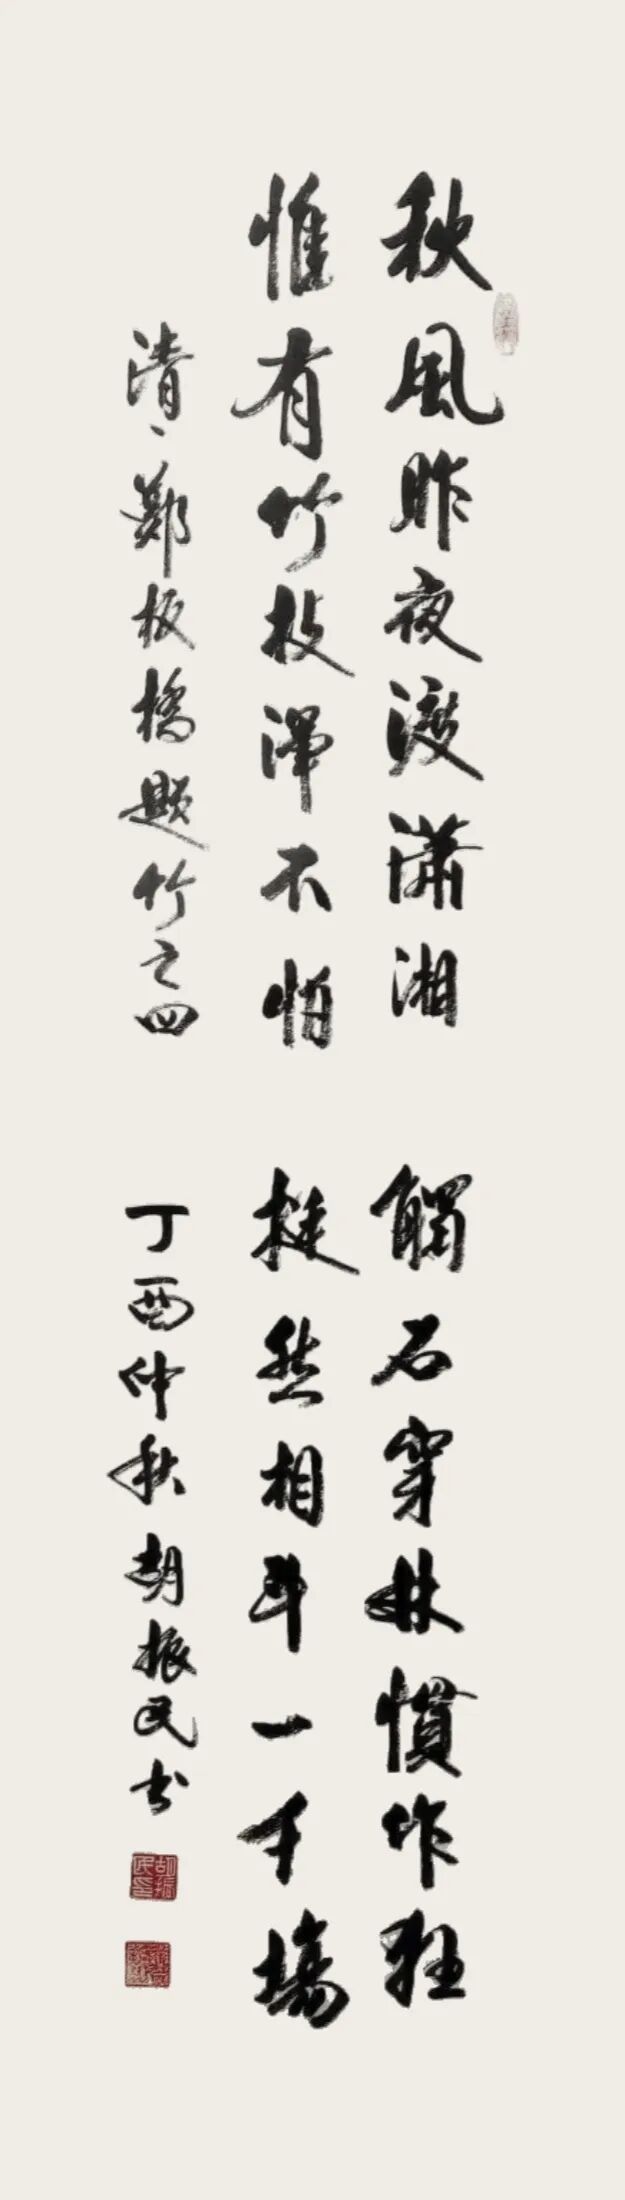 秋風昨夜渡瀟湘 觸石穿林慣作狂
惟有竹枝渾不怕 挺然相斗一千場
清、鄭板橋題竹之四 丁酉仲秋胡振民书
胡振民印